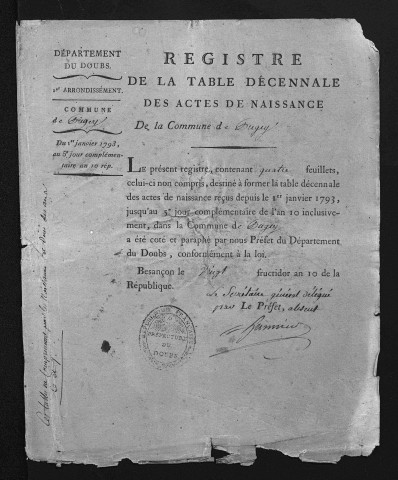 DÉPARTEMENT
DU DOUBS.
1er ARRONDISSEMENT.
COMMUNE
de
Du 1er janvier 1793,
au 5e jour complémen-
taire an 10 rép.
REGISTRE
DE LA TABLE DÉCENNALE
DES ACTES DE NAISSANCE
De la Commune de
LE présent registre, contenant quatre feuillets,
celui-ci non compris, destiné à former la table décennale
des actes de naissance reçus depuis le 1er janvier 1793,
jusqu'au 5e jour complémentaire de l'an 10 inclusive-
ment, dans la Commune de
a été coté et paraphé par nous Préfet du Département
du Doubs, conformément à la loi.
Besançon le Vingt fructidor an 10 de la
République.
Le Secrétaire général délégué
pour Le Préfet, absent
PRÉFECTURE
DU
DOUBS.